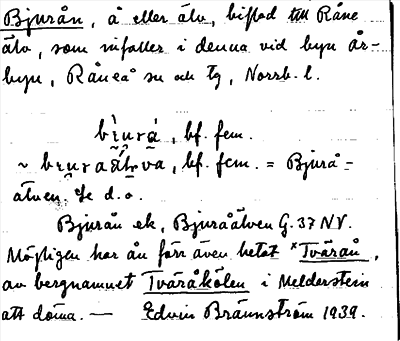 Bjurån, å eller älv, biflod till Råne
älv, som infaller i denna vid byn År-
byn, Råneå sn och tg, Norrb. l.
bìurá, bf. fem.
~ bɩuraä́lva, bf. fem. = Bjurå-
älven. Se d.o.
Bjurån ek, Bjuråälven G. 37 NV.
Möjligen har ån förr även hetat *Tväråⁿ,
av bergnamnet Tväråkölen i Melderstein
att döma. — Edvin Brännström 1939.